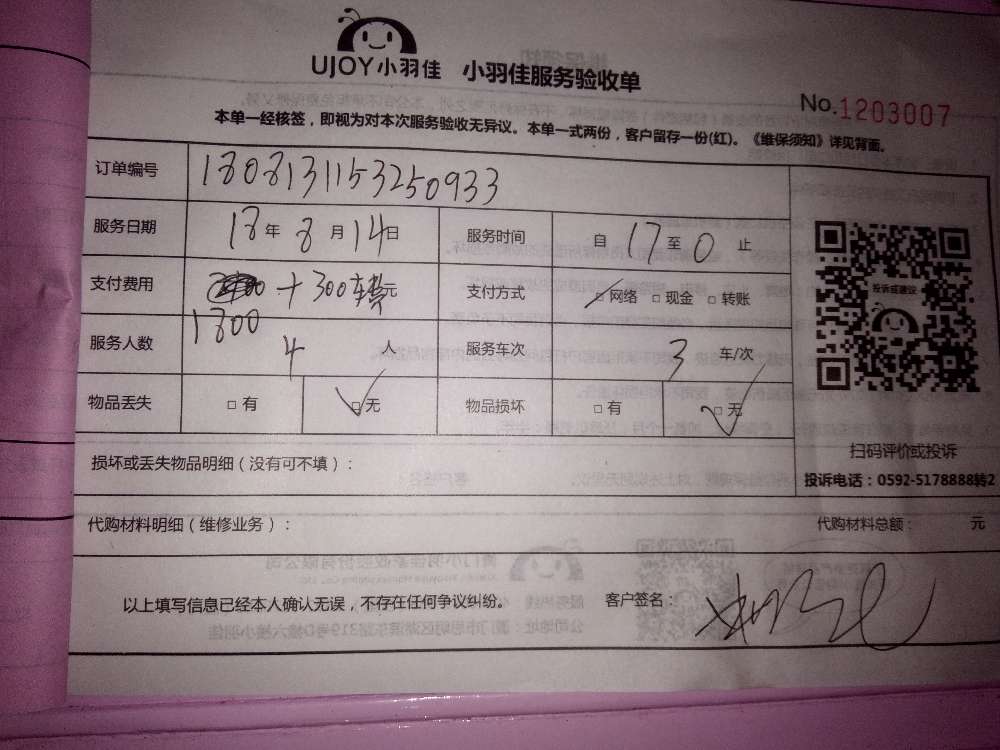 UJOY小羽佳 小羽佳服务验收单
No.1203007
本单一经核签，即视为对本次服务验收无异议。本单一式两份，客户留存一份(红)。《维保须知》详见背面。
订单编号 1808131153250933
服务日期 18年8月14日 服务时间 自17至0止
支付费用 1800+300转元 支付方式 □网络 □现金 □转账
服务人数 4人 服务车次 3车/次
物品丢失 □有 □无 物品损坏 □有 □无
投诉或建议
扫码评价或投诉
投诉电话：0592-5178888转2
损坏或丢失物品明细（没有可不填）：
代购材料明细（维修业务）： 代购材料总额： 元
以上填写信息已经本人确认无误，不存在任何争议纠纷。 客户签名：